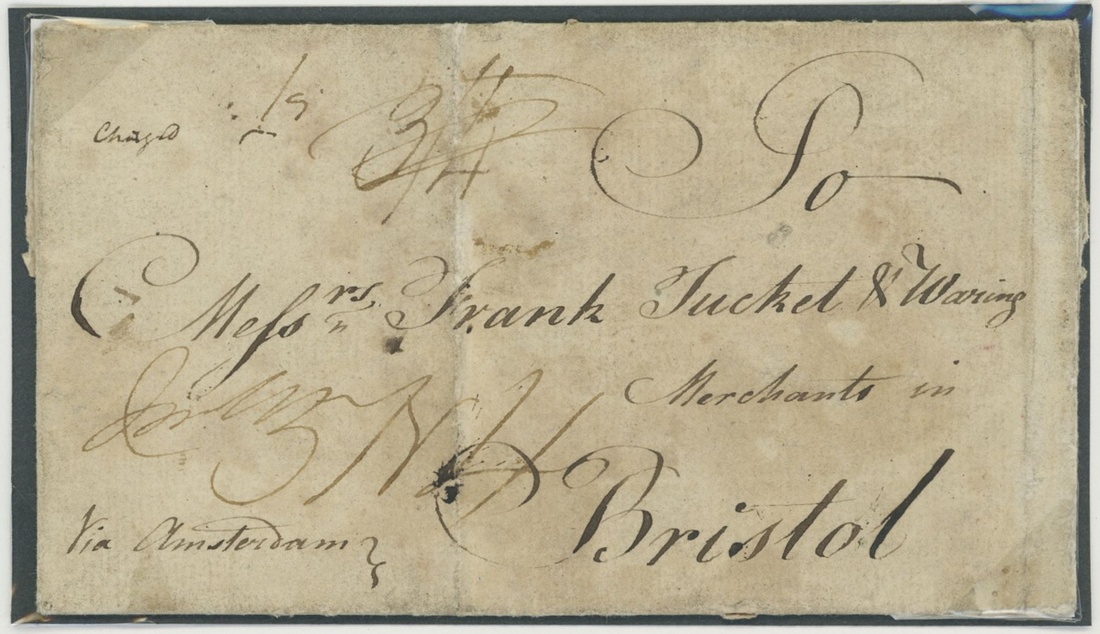 Charged 1/9
To
Mess.rs Frank Tucket & Waring
Merchants in
Bristol
Via Amsterdam